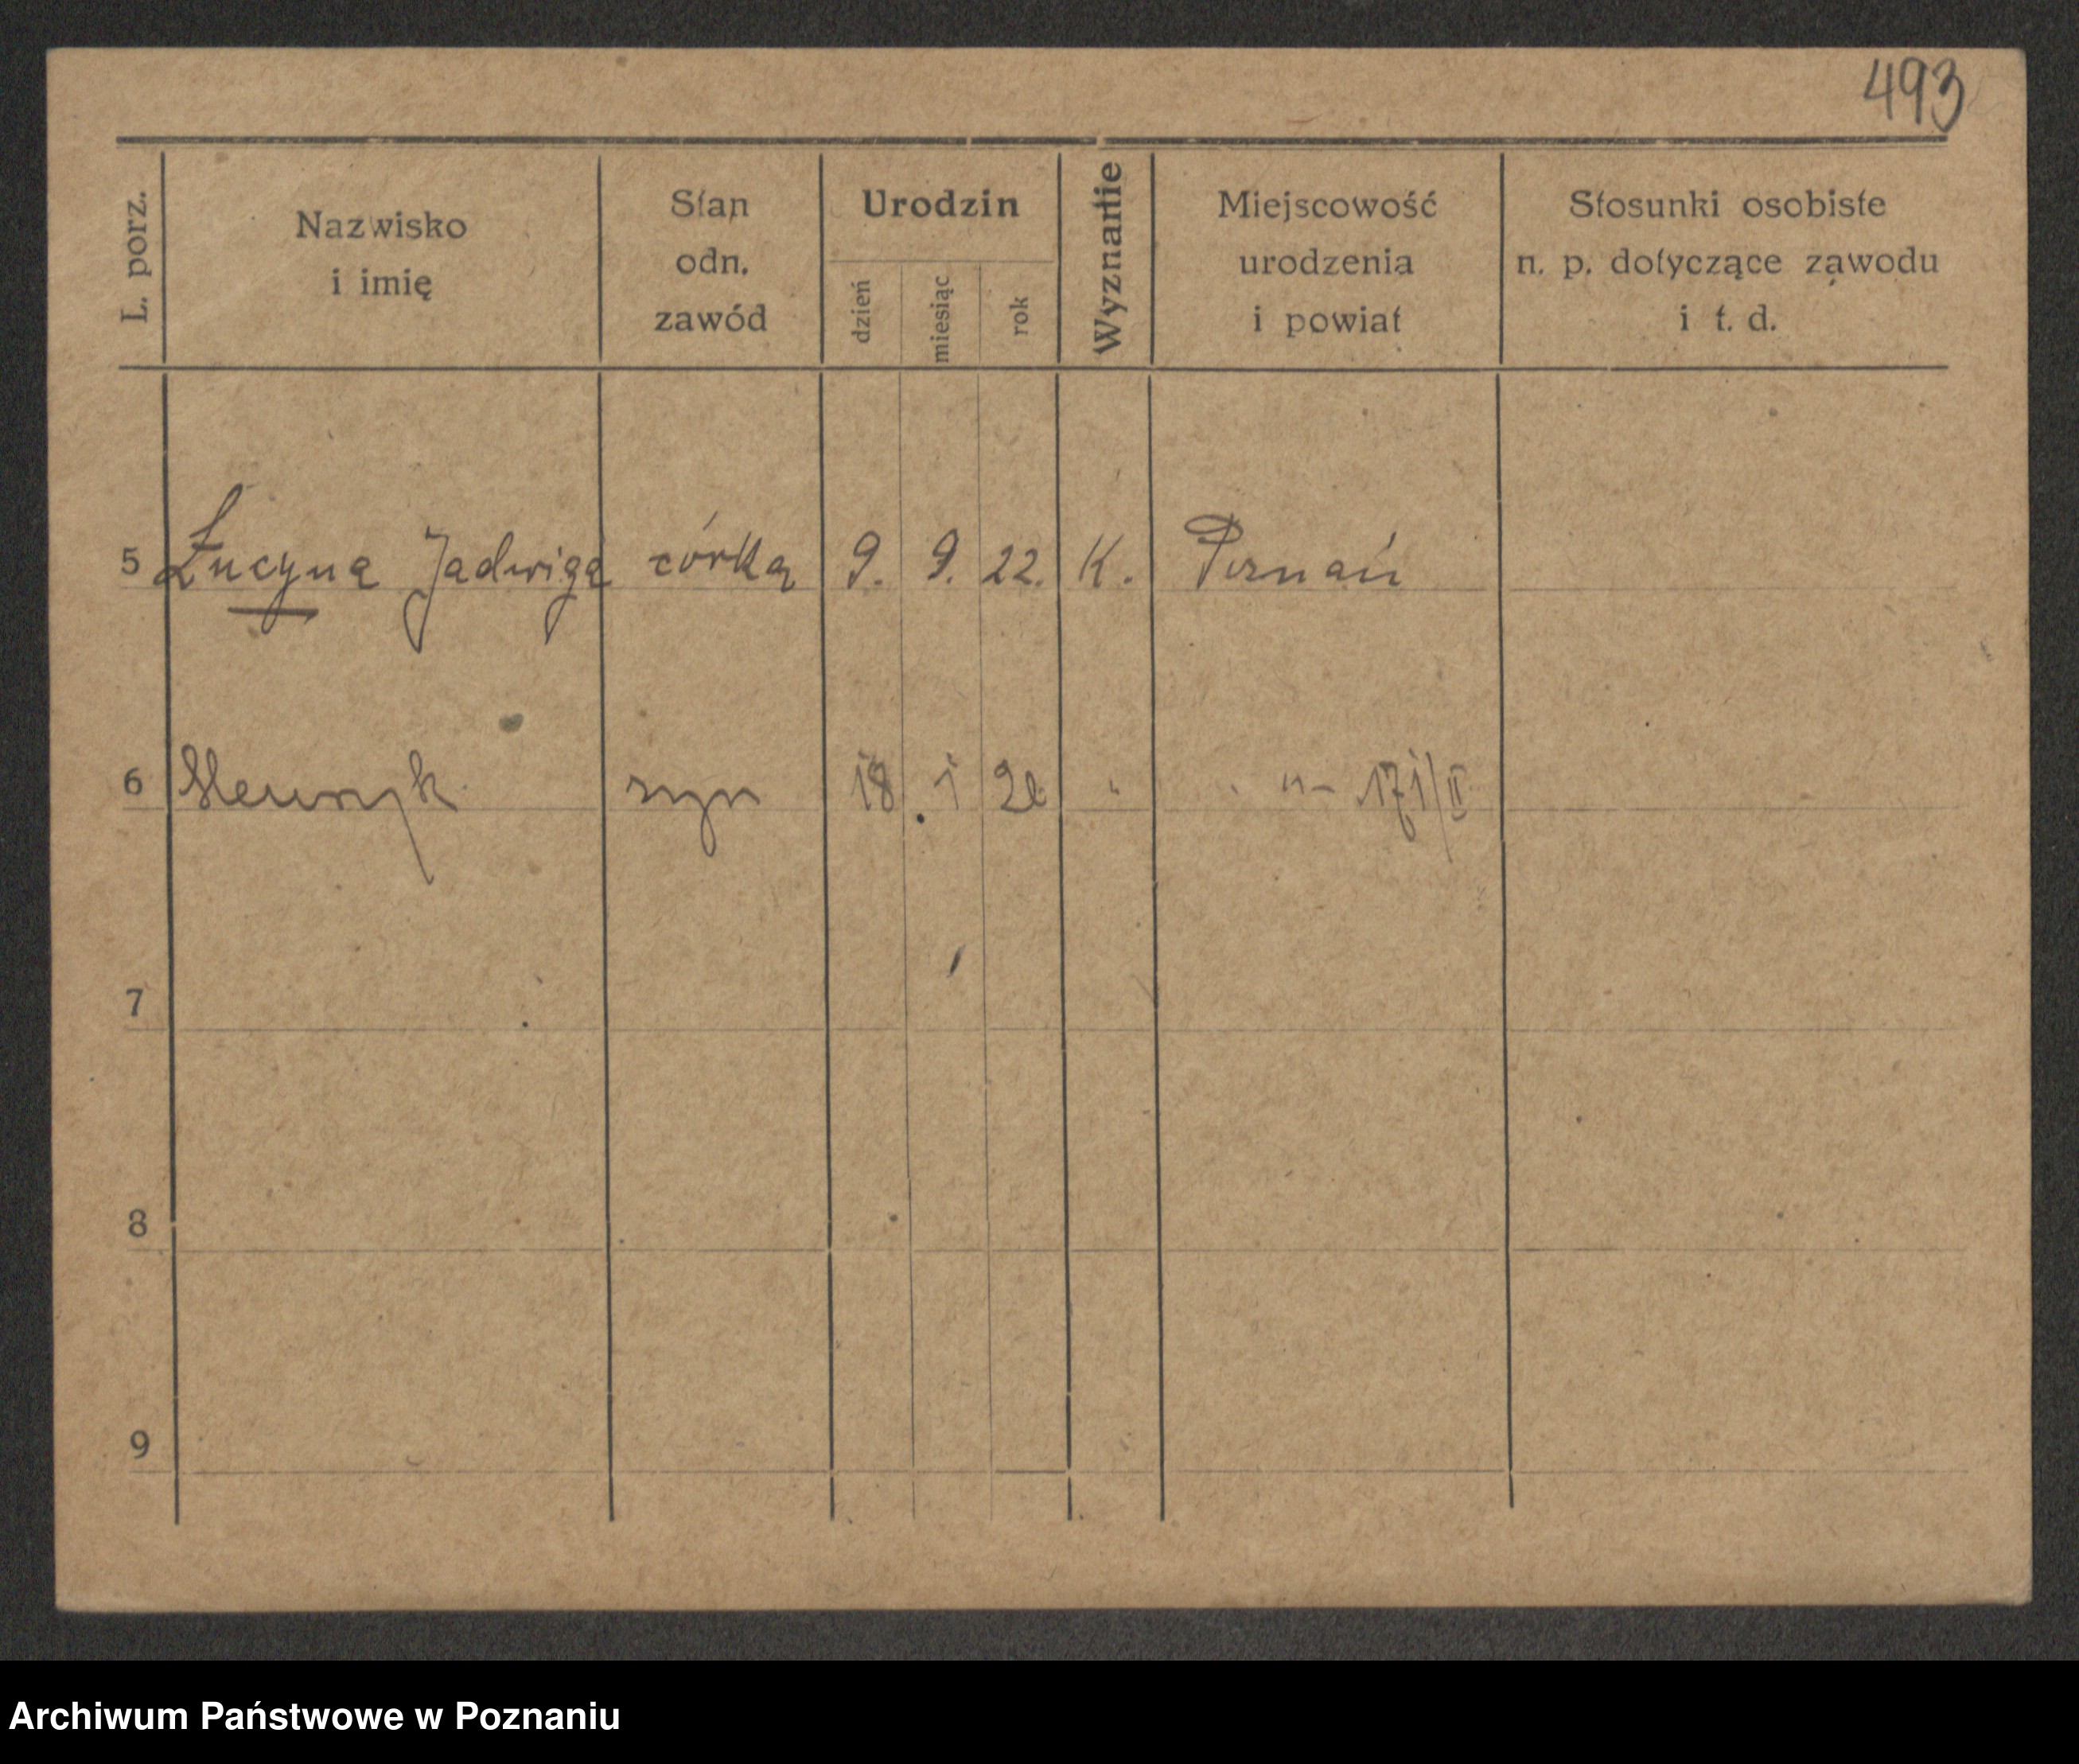 493
L. porz.
Nazwisko
i imię
Stan
odn.
zawód
Urodzin
dzień
miesiąc
rok
Wyznanie
Miejscowość
urodzenia
i powiat
Stosunki osobiste
n. p. dotyczące zawodu
i t. d.
5 Łucyna Jadwiga córka 9. 9. 22. K. Poznań
6 Henryk syn 18 1 " -"- 171/II
7
8
9
Archiwum Państwowe w Poznaniu